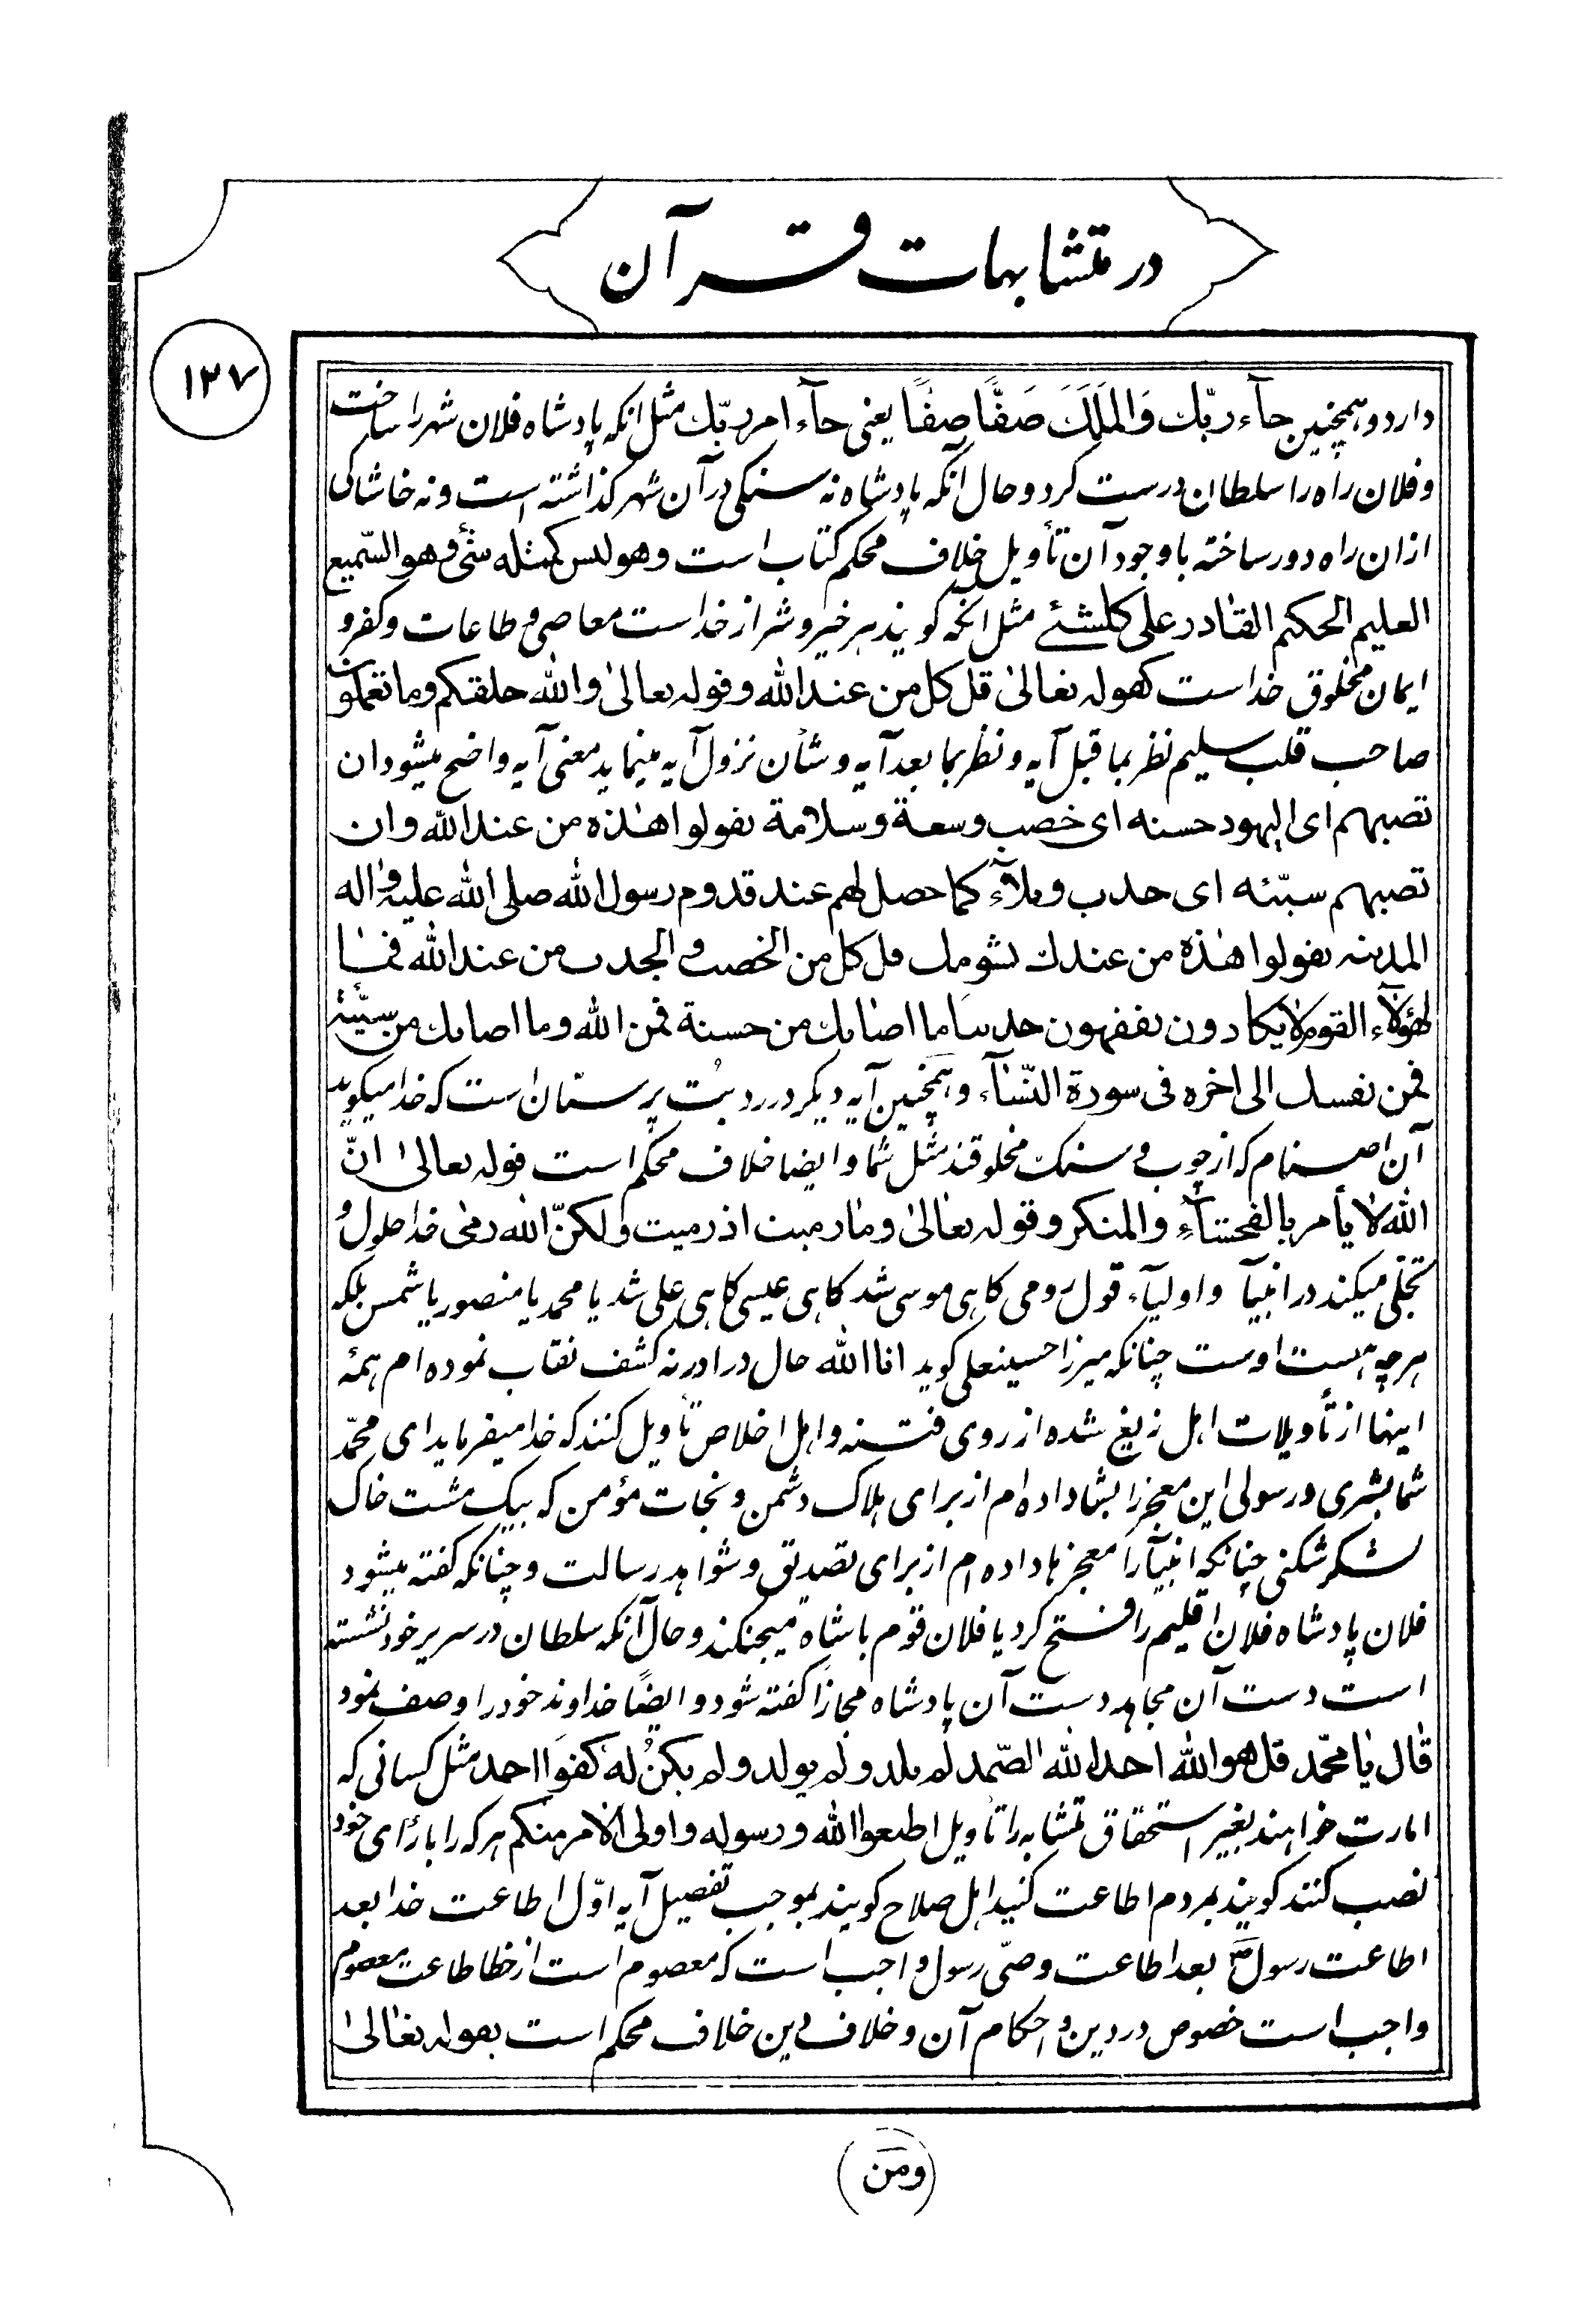 در متشابهات قرآن
۱۳۷
دارد و همچنین جآء ربّك وَالمَلَكَ صَفًّا صفًا یعنی جآء امر ربّك مثل انکه پادشاه فلان شهر را ساخت
و فلان راه را سلطان درست کرد و حال آنکه پادشاه نه سنکی در آن شهر کذاشته است و نه خاشاکی
ازان راه دور ساخته با وجود آن تأویل خلاف محکم کتاب است وهو لیس کمثله شئ وهو السّمیع
العلیم الحکیم القادر علی کلشئ مثل انکه کویند هر خیر و شر از خداست معاصی و طاعات و کفر و
ایمان مخلوق خداست کقوله تعالیٰ قل کل من عند الله وقوله تعالیٰ والله خلقکم وما تعملون
صاحب قلب سلیم نظر بما قبل آیه و نظر بما بعد آیه و شأن نزول آیه مینماید معنی آیه واضح میشود ان
تصبهم ای الیهود حسنه ای خصب وسعة وسلامة یقولوا هٰذه من عند الله وان
تصبهم سیّئه ای جدب وبلآء کما حصل لهم عند قدوم رسول الله صلی الله علیه واله
المدینه یقولوا هٰذه من عندك بشومك قل کل من الخصب والجدب من عند الله فما
لهؤلآء القوم لایکادون یفقهون حدیثا ما اصابك من حسنة فمن الله وما اصابك من سیّئة
فمن نفسك الی اخره فی سورة النّسآء و همچنین آیه دیکر در رد بُت پرستان است که خدا میکوید
آن اصنام که از چوب و سنک مخلوقند مثل شما و ایضا خلاف محکم است قوله تعالی انّ
الله لا یأمر بالفحشآء والمنکر وقوله تعالیٰ وما رمیت اذ رمیت ولکنّ الله رمیٰ خدا حلول و
تجلّی میکند در انبیآ و اولیآء قول رومی کاهی موسی شد کاهی عیسی کاهی علی شد یا محمد یا منصور یا شمس بلکه
هر چه هست اوست چنانکه میرزا حسینعلی کوید انا الله حال در ادرنه کشف نقاب نموده ام همهٔ
اینها از تأویلات اهل زیغ شده از روی فتنه و اهل اخلاص تأویل کنند که خدا میفرماید ای محمّد
شما بشری و رسولی این معجز را بشما داده ام از برای هلاک دشمن و نجات مؤمن که بیک مشت خاک
لشکر شکنی چنانکه انبیآ را معجزها داده ام از برای تصدیق و شواهد رسالت و چنانکه کفته میشود
فلان پادشاه فلان اقلیم را فتح کرد یا فلان قوم با شاه میجنکند و حال آنکه سلطان در سریر خود نشسته
است دست آن مجاهد دست آن پادشاه مجازًا کفته شود و ایضًا خداوند خود را وصف نمود
قال یا محمّد قل هو الله احد الله الصّمد لم یلد ولم یولد ولم یکنُ لهُ کفوًا احد مثل کسانی که
امارت خواهند بغیر استحقاق متشابه را تأویل اطیعوا الله ورسوله واولی الامر منکم هر که را با رأی خود
نصب کنند کویند بمردم اطاعت کنید اهل صلاح کویند بموجب تفصیل آیه اوّل اطاعت خدا بعد
اطاعت رسول ص بعد اطاعت وصّی رسول واجب است که معصوم است از خطا طاعت معصوم
واجب است خصوص در دین و احکام آن و خلاف این خلاف محکم است بقوله تعالیٰ
(ومَن)